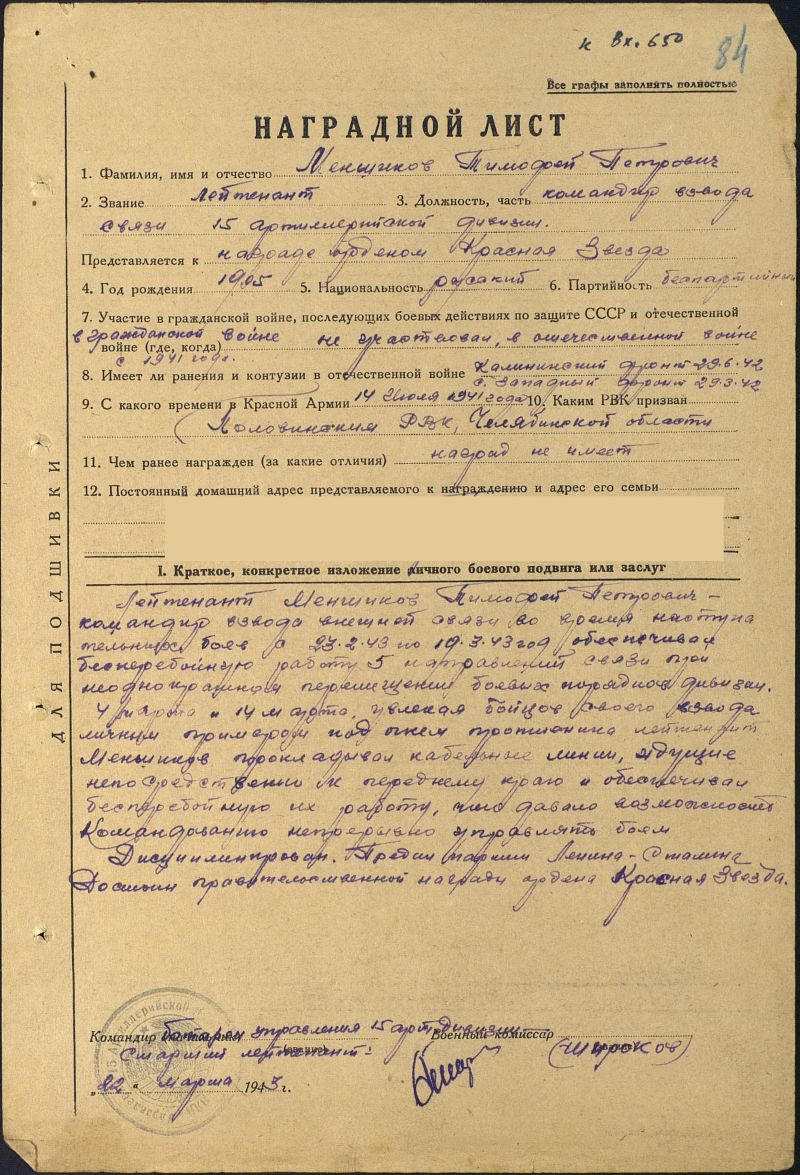 к Вх. 650
84
Все графы заполнять полностью
НАГРАДНОЙ ЛИСТ
1. Фамилия, имя и отчество Меньщиков Тимофей Петрович
2. Звание Лейтенант 3. Должность, часть командир взвода
связи 15 артиллерийской дивизии.
Представляется к награде орденом Красная Звезда
4. Год рождения 1905 5. Национальность русский 6. Партийность беспартийный
7. Участие в гражданской войне, последующих боевых действиях по защите СССР и отечественной
войне (где, когда) в гражданской войне не участвовал, в отечественной войне
с 1941 года.
8. Имеет ли ранения и контузии в отечественной войне Калининский фронт 29.6.42
С. Западный фронт 29.3.42
9. С какого времени в Красной Армии 14 Июля 1941 года 10. Каким РВК призван
Половинским РВК, Челябинской области
11. Чем ранее награжден (за какие отличия) наград не имеет
12. Постоянный домашний адрес представляемого к награждению и адрес его семьи
I. Краткое, конкретное изложение личного боевого подвига или заслуг
Лейтенант Меньщиков Тимофей Петрович –
командир взвода внешней связи во время наступа
тельных боев с 27.2.43 по 19.3.43 год обеспечивал
бесперебойную работу 5 направлений связи при
неоднократном перемещении боевых порядков дивизии.
4 марта и 14 марта, увлекая бойцов своего взвода
личным примером под огнем противника лейтенант
Меньщиков прокладывал кабельные линии, идущие
непосредственно к переднему краю и обеспечивал
бесперебойную их работу, что давало возможность
Командованию непрерывно управлять боем
Дисциплинирован. Предан партии Ленина-Сталина
Достоин правительственной награды ордена Красная Звезда.
Командир батареи управления 15 арт дивизии Военный комиссар
Старший лейтенант: (Широков)
„22" марта 1943 г.
ДЛЯ ПОДШИВКИ